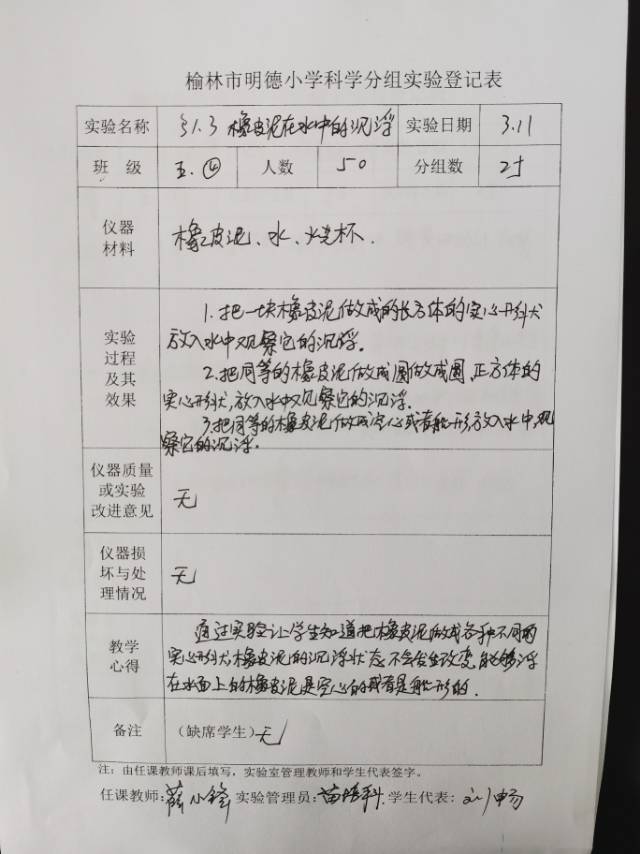 榆林市明德小学科学分组实验登记表
实验名称 §1.3 橡皮泥在水中的沉浮 实验日期 3.11
班 级 五.④ 人数 50 分组数 25
仪器材料 橡皮泥、水、烧杯.
实验过程及其效果
1.把一块橡皮泥做成的长方体的实心形状
放入水中观察它的沉浮.
2.把同等的橡皮泥做成圆做成圆,正方体的
实心形状,放入水中观察它的沉浮.
3.把同等的橡皮泥做成空心或者船形放入水中,观
察它的沉浮.
仪器质量或实验改进意见 无
仪器损坏与处理情况 无
教学心得
通过实验让学生知道把橡皮泥做成各种不同的
实心形状,橡皮泥的沉浮状态不会发生改变,能够浮
在水面上的橡皮泥是空心的或者是船形的.
备注 (缺席学生)无
注:由任课教师课后填写,实验室管理教师和学生代表签字。
任课教师: 小 实验管理员: 科 学生代表: 刘畅